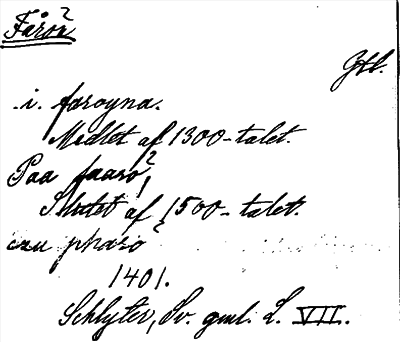 Fårön²
Gtl.
i. faroyna.
Medlet af 1300-talet.
Paa faarö²,
Slutet af 1500-talet.
czu pharö²
1401.
Schlyter, Sv. gml. L. VII.